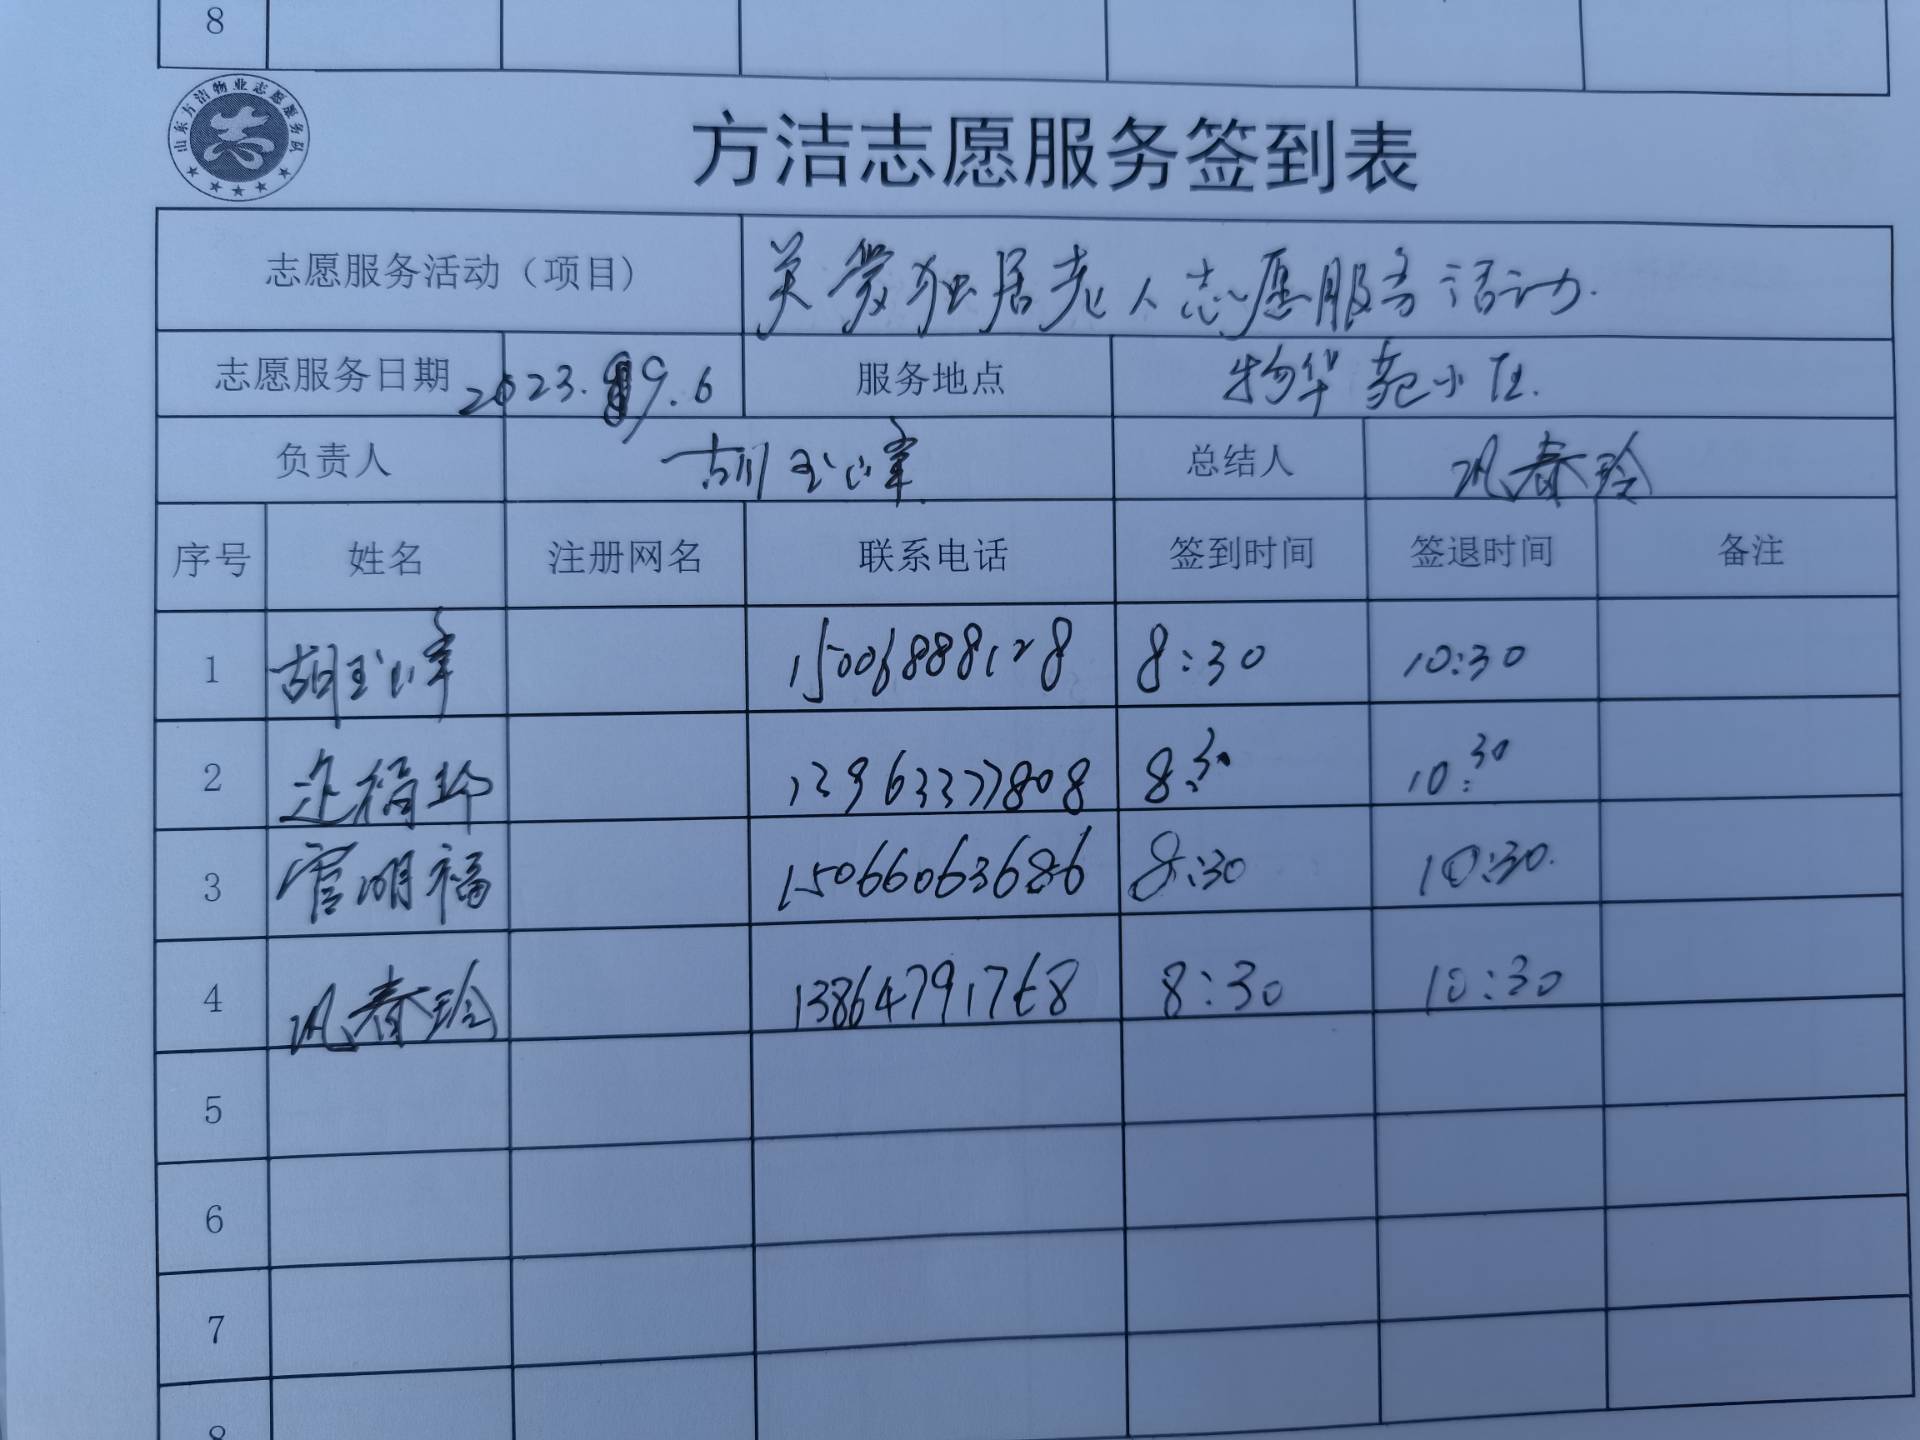 8
山东方洁物业志愿服务队
志
方洁志愿服务签到表
志愿服务活动（项目） 关爱独居老人志愿服务活动.
志愿服务日期 2023.9.6 服务地点 物华苑小区.
负责人 胡玉峰 总结人 巩春玲
序号 姓名 注册网名 联系电话 签到时间 签退时间 备注
1 胡玉峰 15006888128 8:30 10:30
2 8:30 10:30
3 官明福 15066063686 8:30 10:30.
4 巩春玲 13864791768 8:30 10:30
5
6
7
8